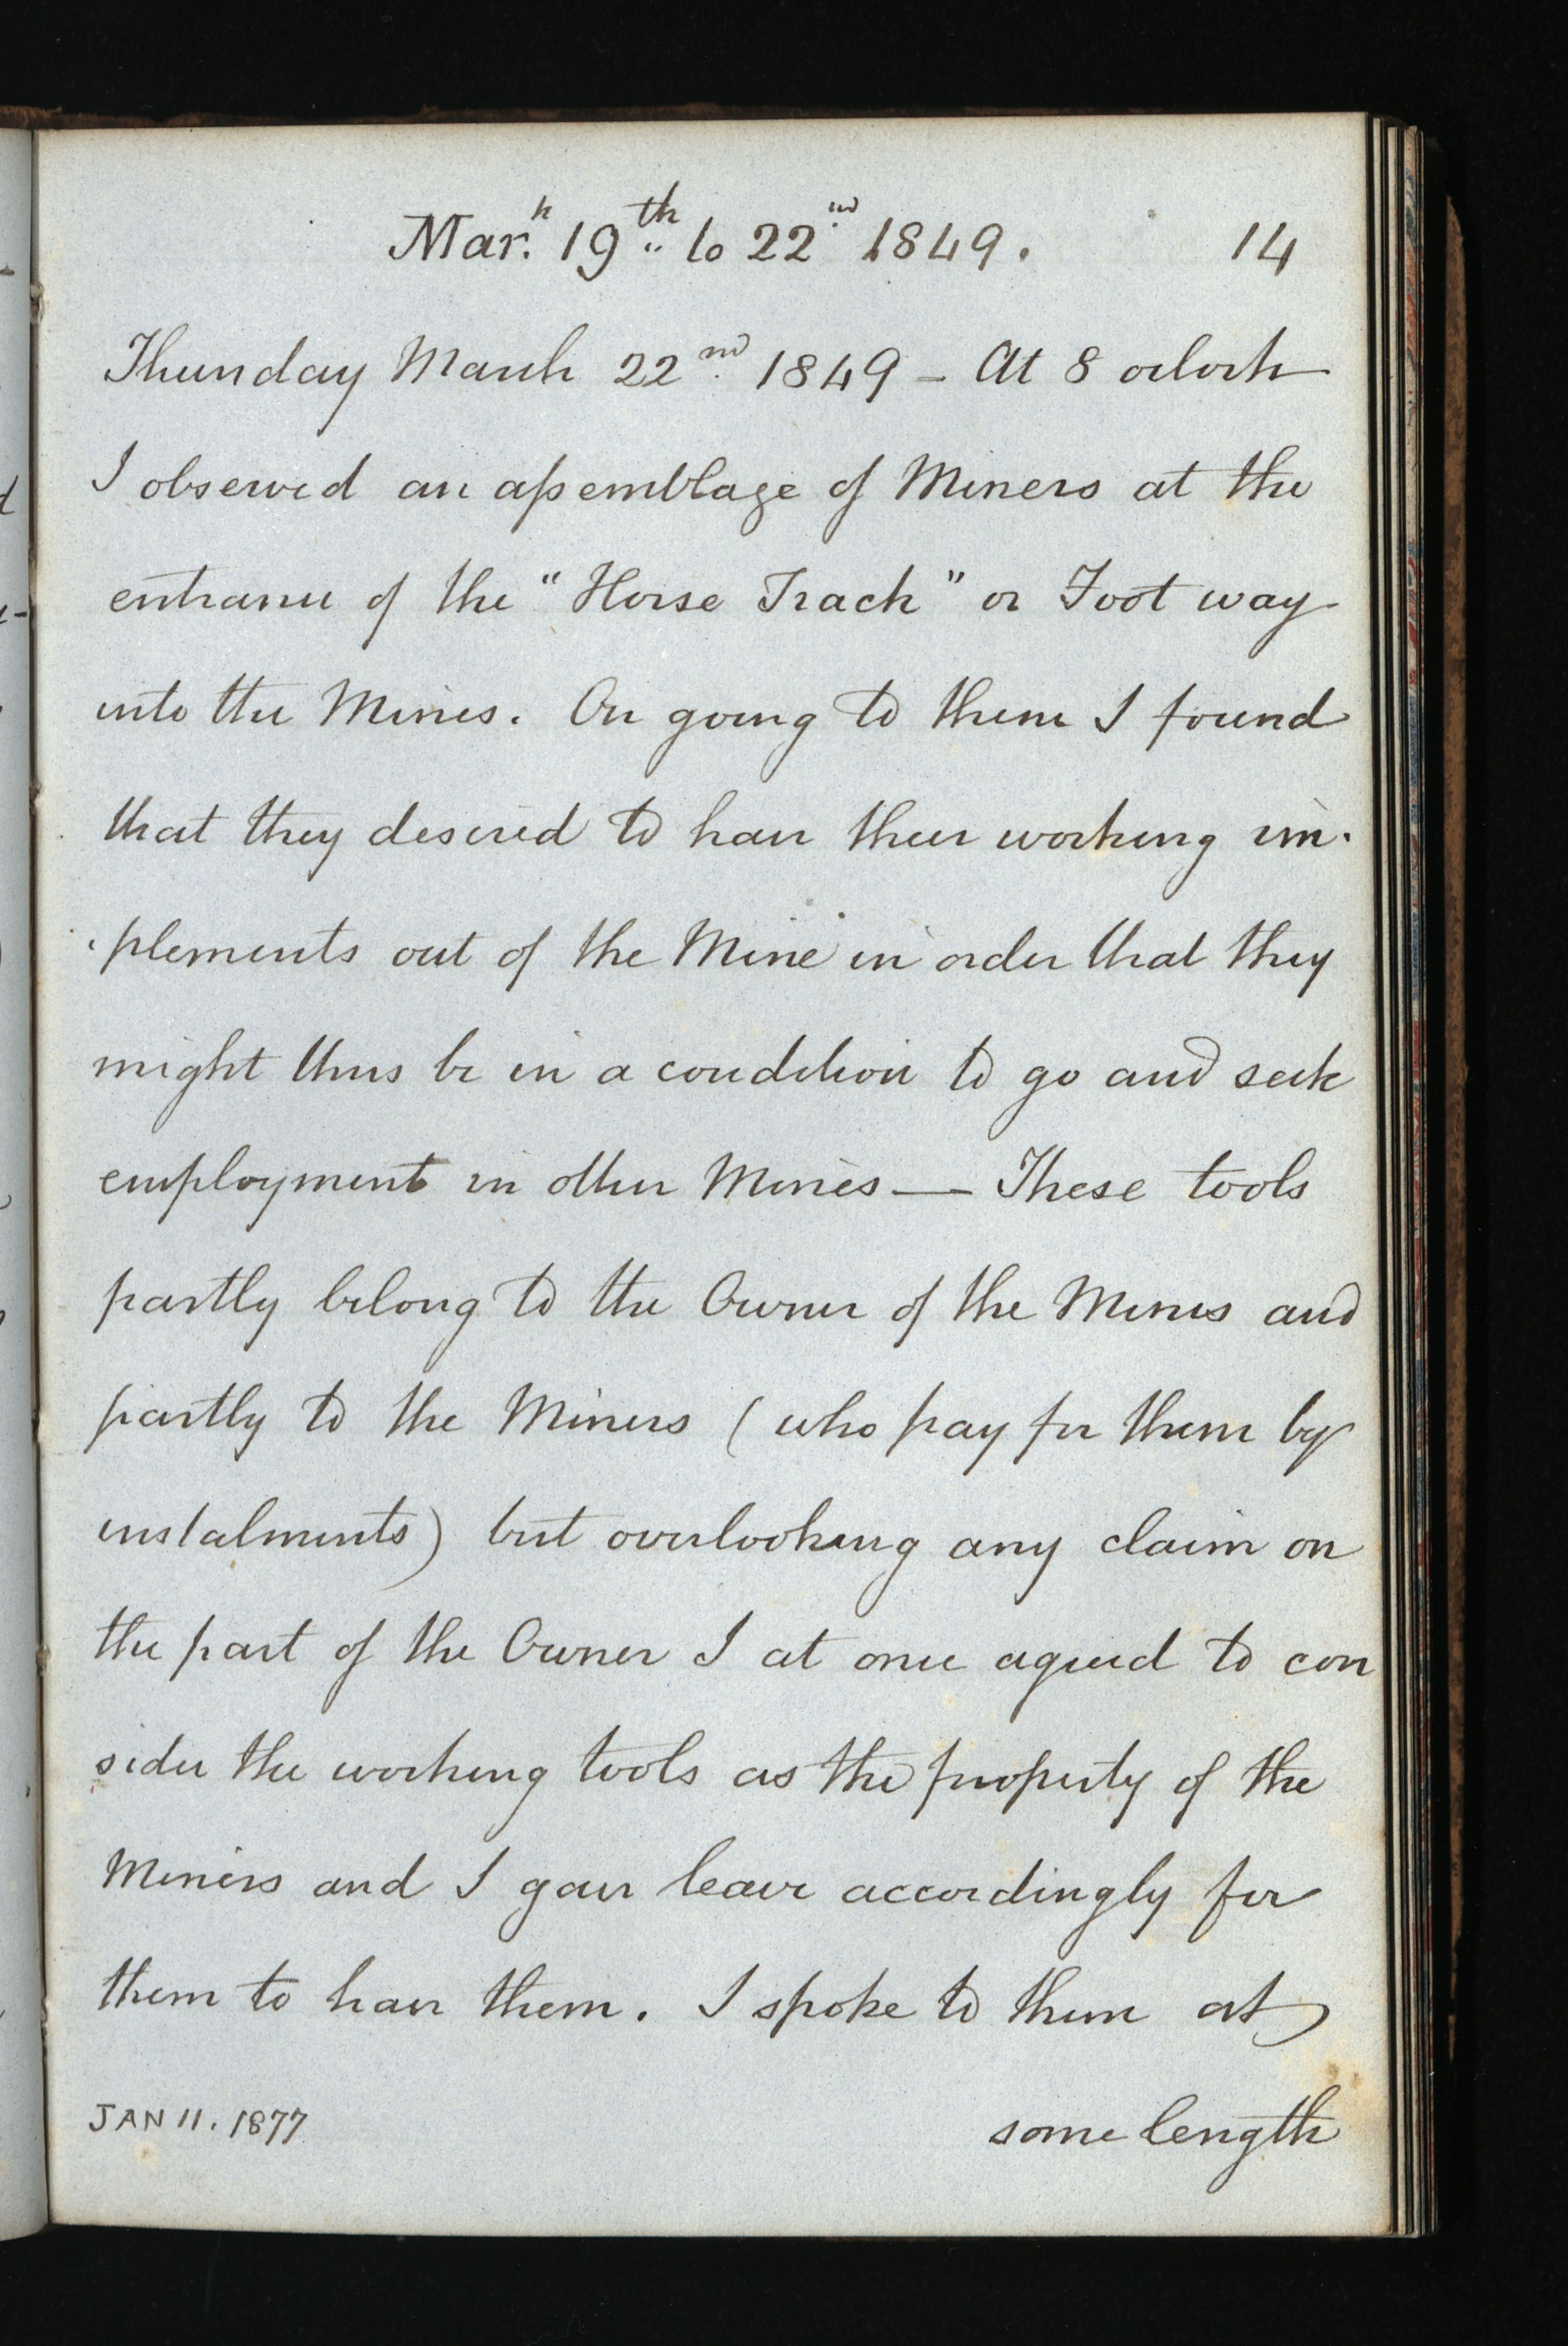 Mar.h 19th to 22nd 1849. 14
Thursday March 22nd 1849 - At 8 oclock
I observed an assemblage of Miners at the
entrance of the "Horse Track" or Foot way
into the Mines. On going to them I found
that they desired to have their working im-
-plements out of the Mine in order that they
might thus be in a condition to go and seek
employment in other Mines — These tools
partly belong to the Owner of the Mines and
partly to the Miners (who pay for them by
instalments) but overlooking any claim on
the part of the Owner I at once agreed to con
sider the working tools as the property of the
Miners and I gave leave accordingly for
them to have them. I spoke to them at
JAN 11. 1877 some length